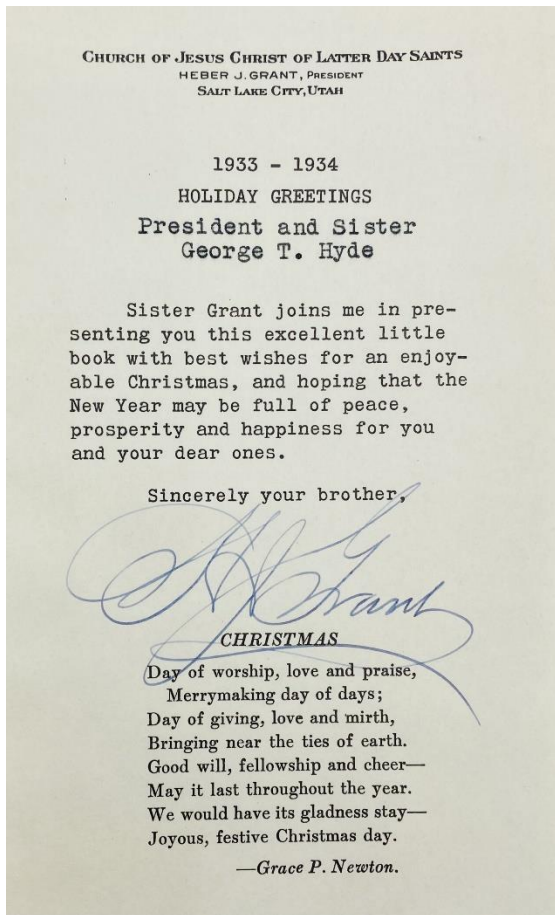 CHURCH OF JESUS CHRIST OF LATTER DAY SAINTS
HEBER J. GRANT, PRESIDENT
SALT LAKE CITY, UTAH
1933 - 1934
HOLIDAY GREETINGS
President and Sister
George T. Hyde
Sister Grant joins me in pre-
senting you this excellent little
book with best wishes for an enjoy-
able Christmas, and hoping that the
New Year may be full of peace,
prosperity and happiness for you
and your dear ones.
Sincerely your brother,
H J Grant
CHRISTMAS
Day of worship, love and praise,
Merrymaking day of days;
Day of giving, love and mirth,
Bringing near the ties of earth.
Good will, fellowship and cheer—
May it last throughout the year.
We would have its gladness stay—
Joyous, festive Christmas day.
—Grace P. Newton.